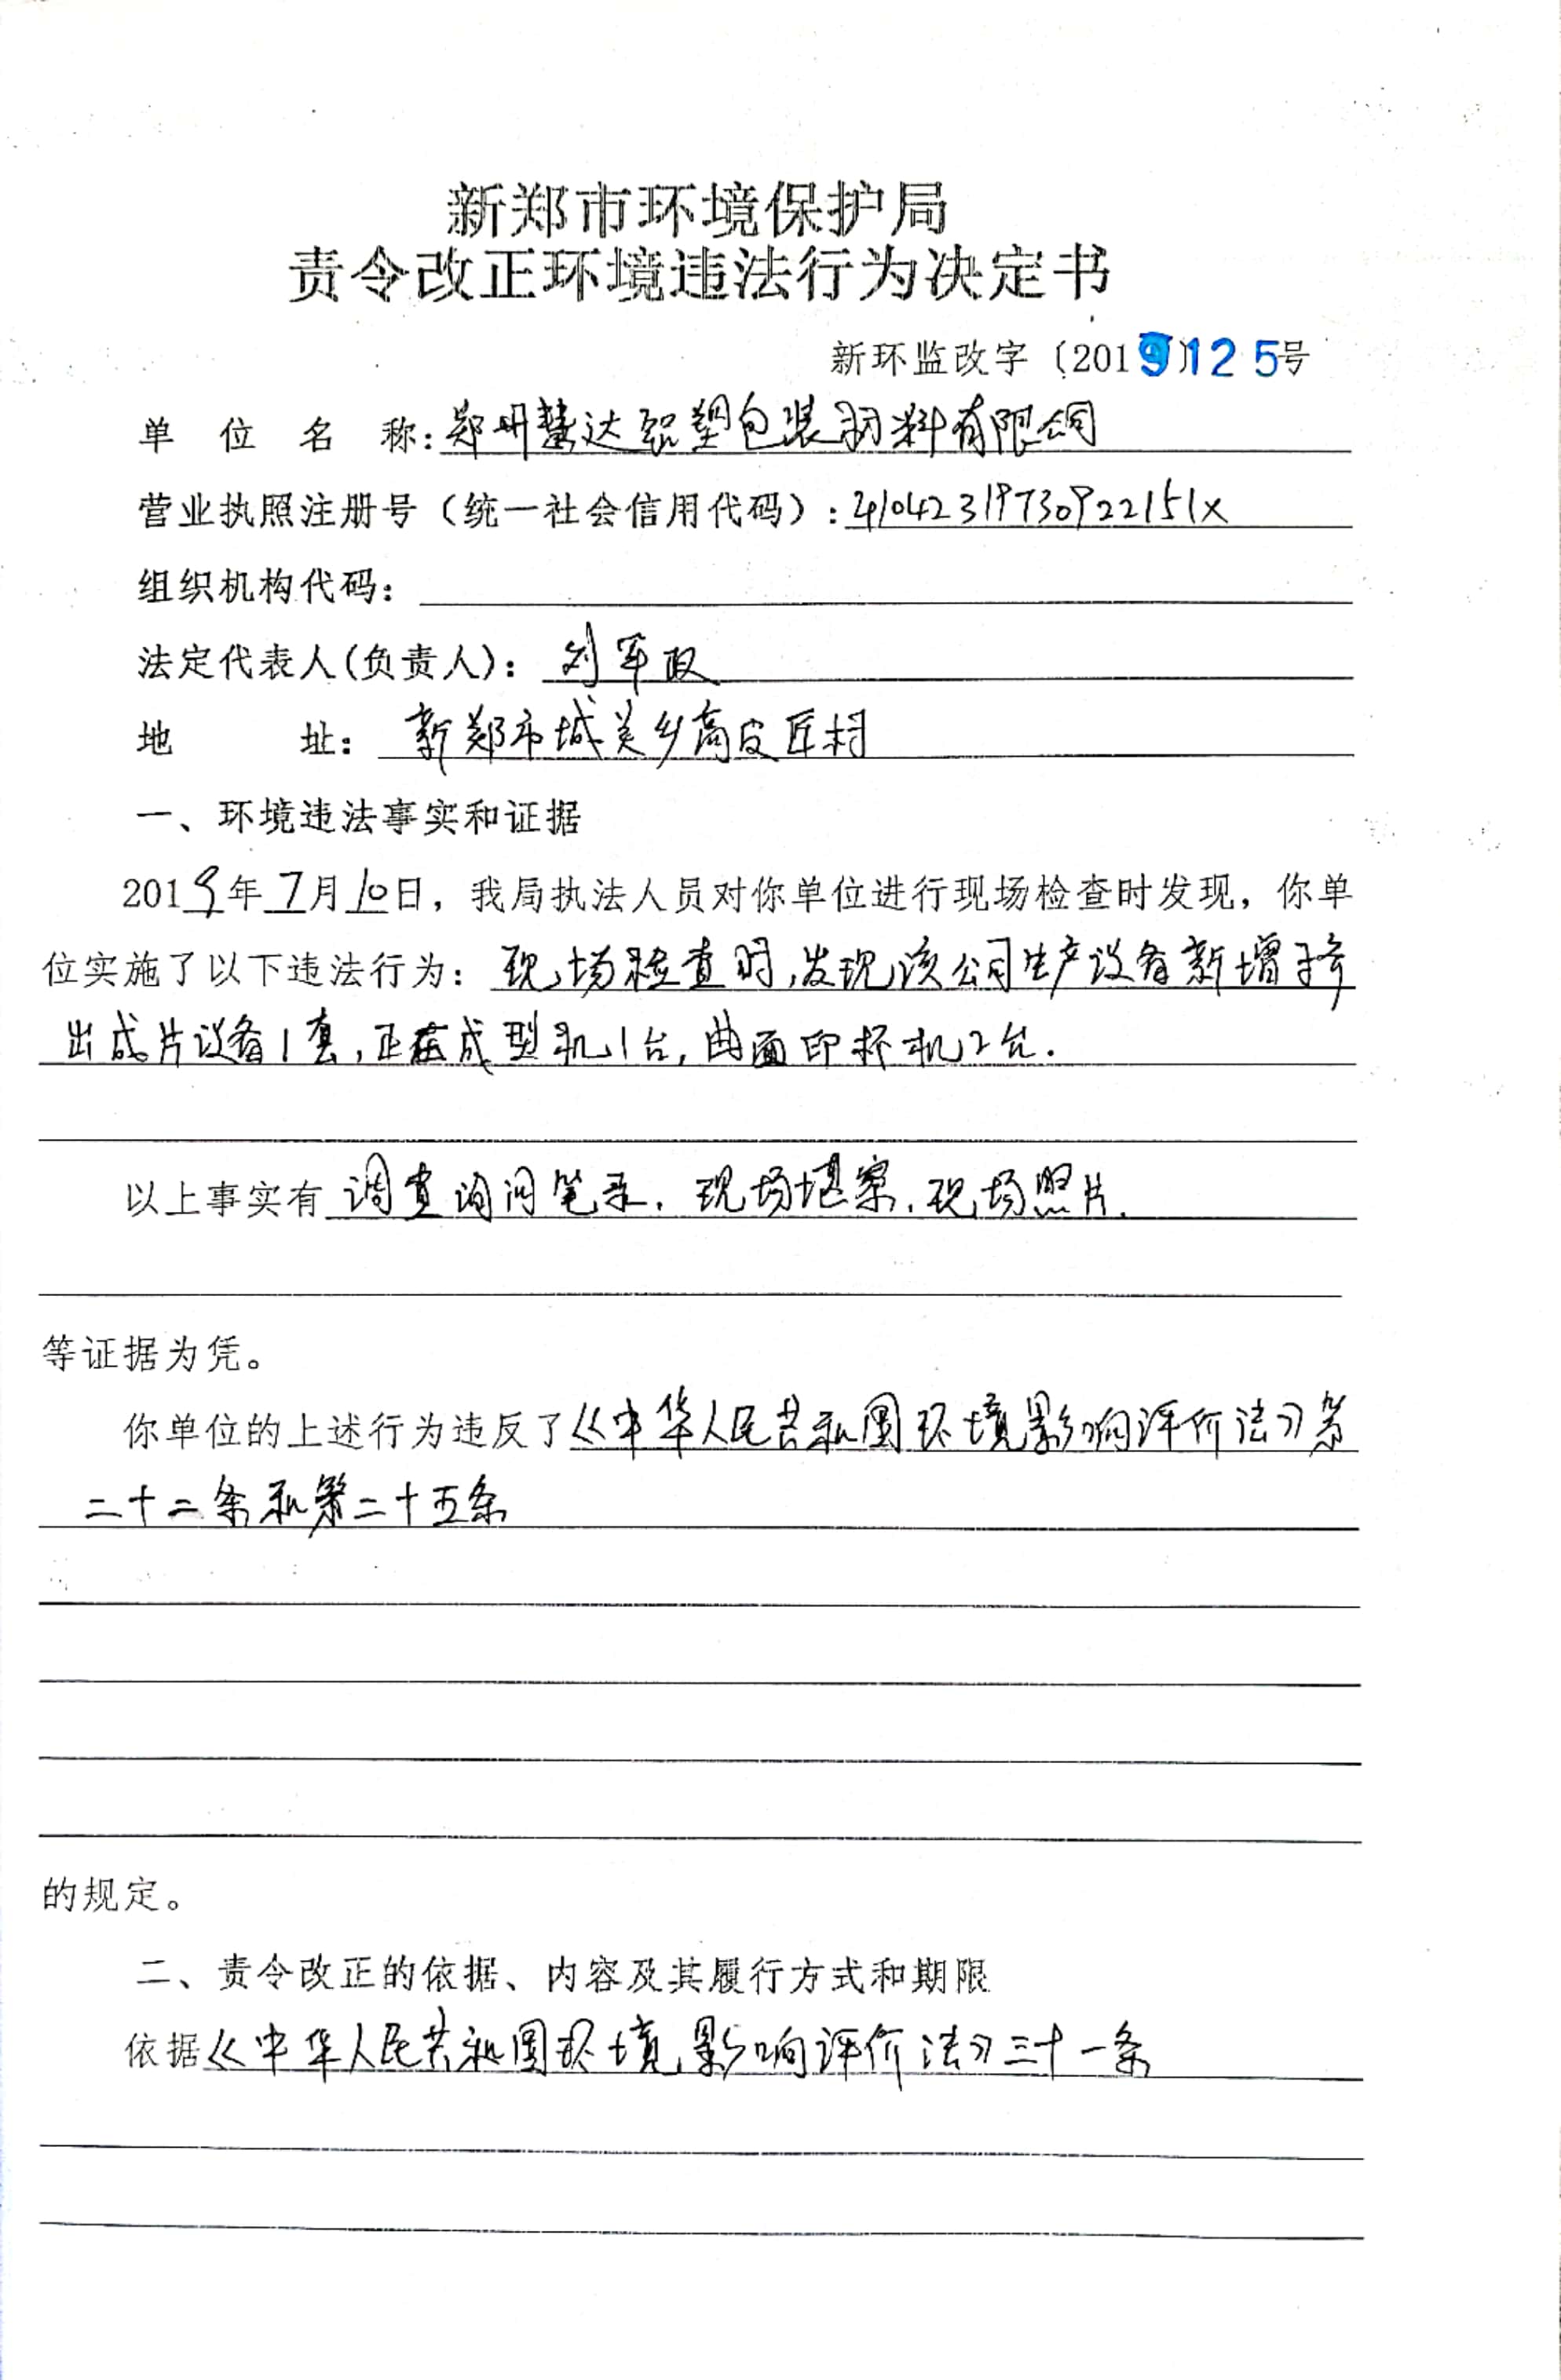 新郑市环境保护局
责令改正环境违法行为决定书
新环监改字〔2019〕125号
单位名称:郑州慧达铝塑包装材料有限公司
营业执照注册号（统一社会信用代码）:41042319730922151X
组织机构代码:
法定代表人(负责人): 刘军政
地址: 新郑市城关乡高皮匠村
一、环境违法事实和证据
2019年7月10日，我局执法人员对你单位进行现场检查时发现，你单
位实施了以下违法行为: 现场检查时,发现该公司生产设备新增挤
出成片设备1套,正在成型机1台,曲面印杯机2台.
以上事实有 调查询问笔录. 现场堪察. 现场照片.
等证据为凭。
你单位的上述行为违反了《中华人民共和国环境影响评价法》第
二十二条和第二十五条
的规定。
二、责令改正的依据、内容及其履行方式和期限
依据《中华人民共和国环境影响评价法》三十一条